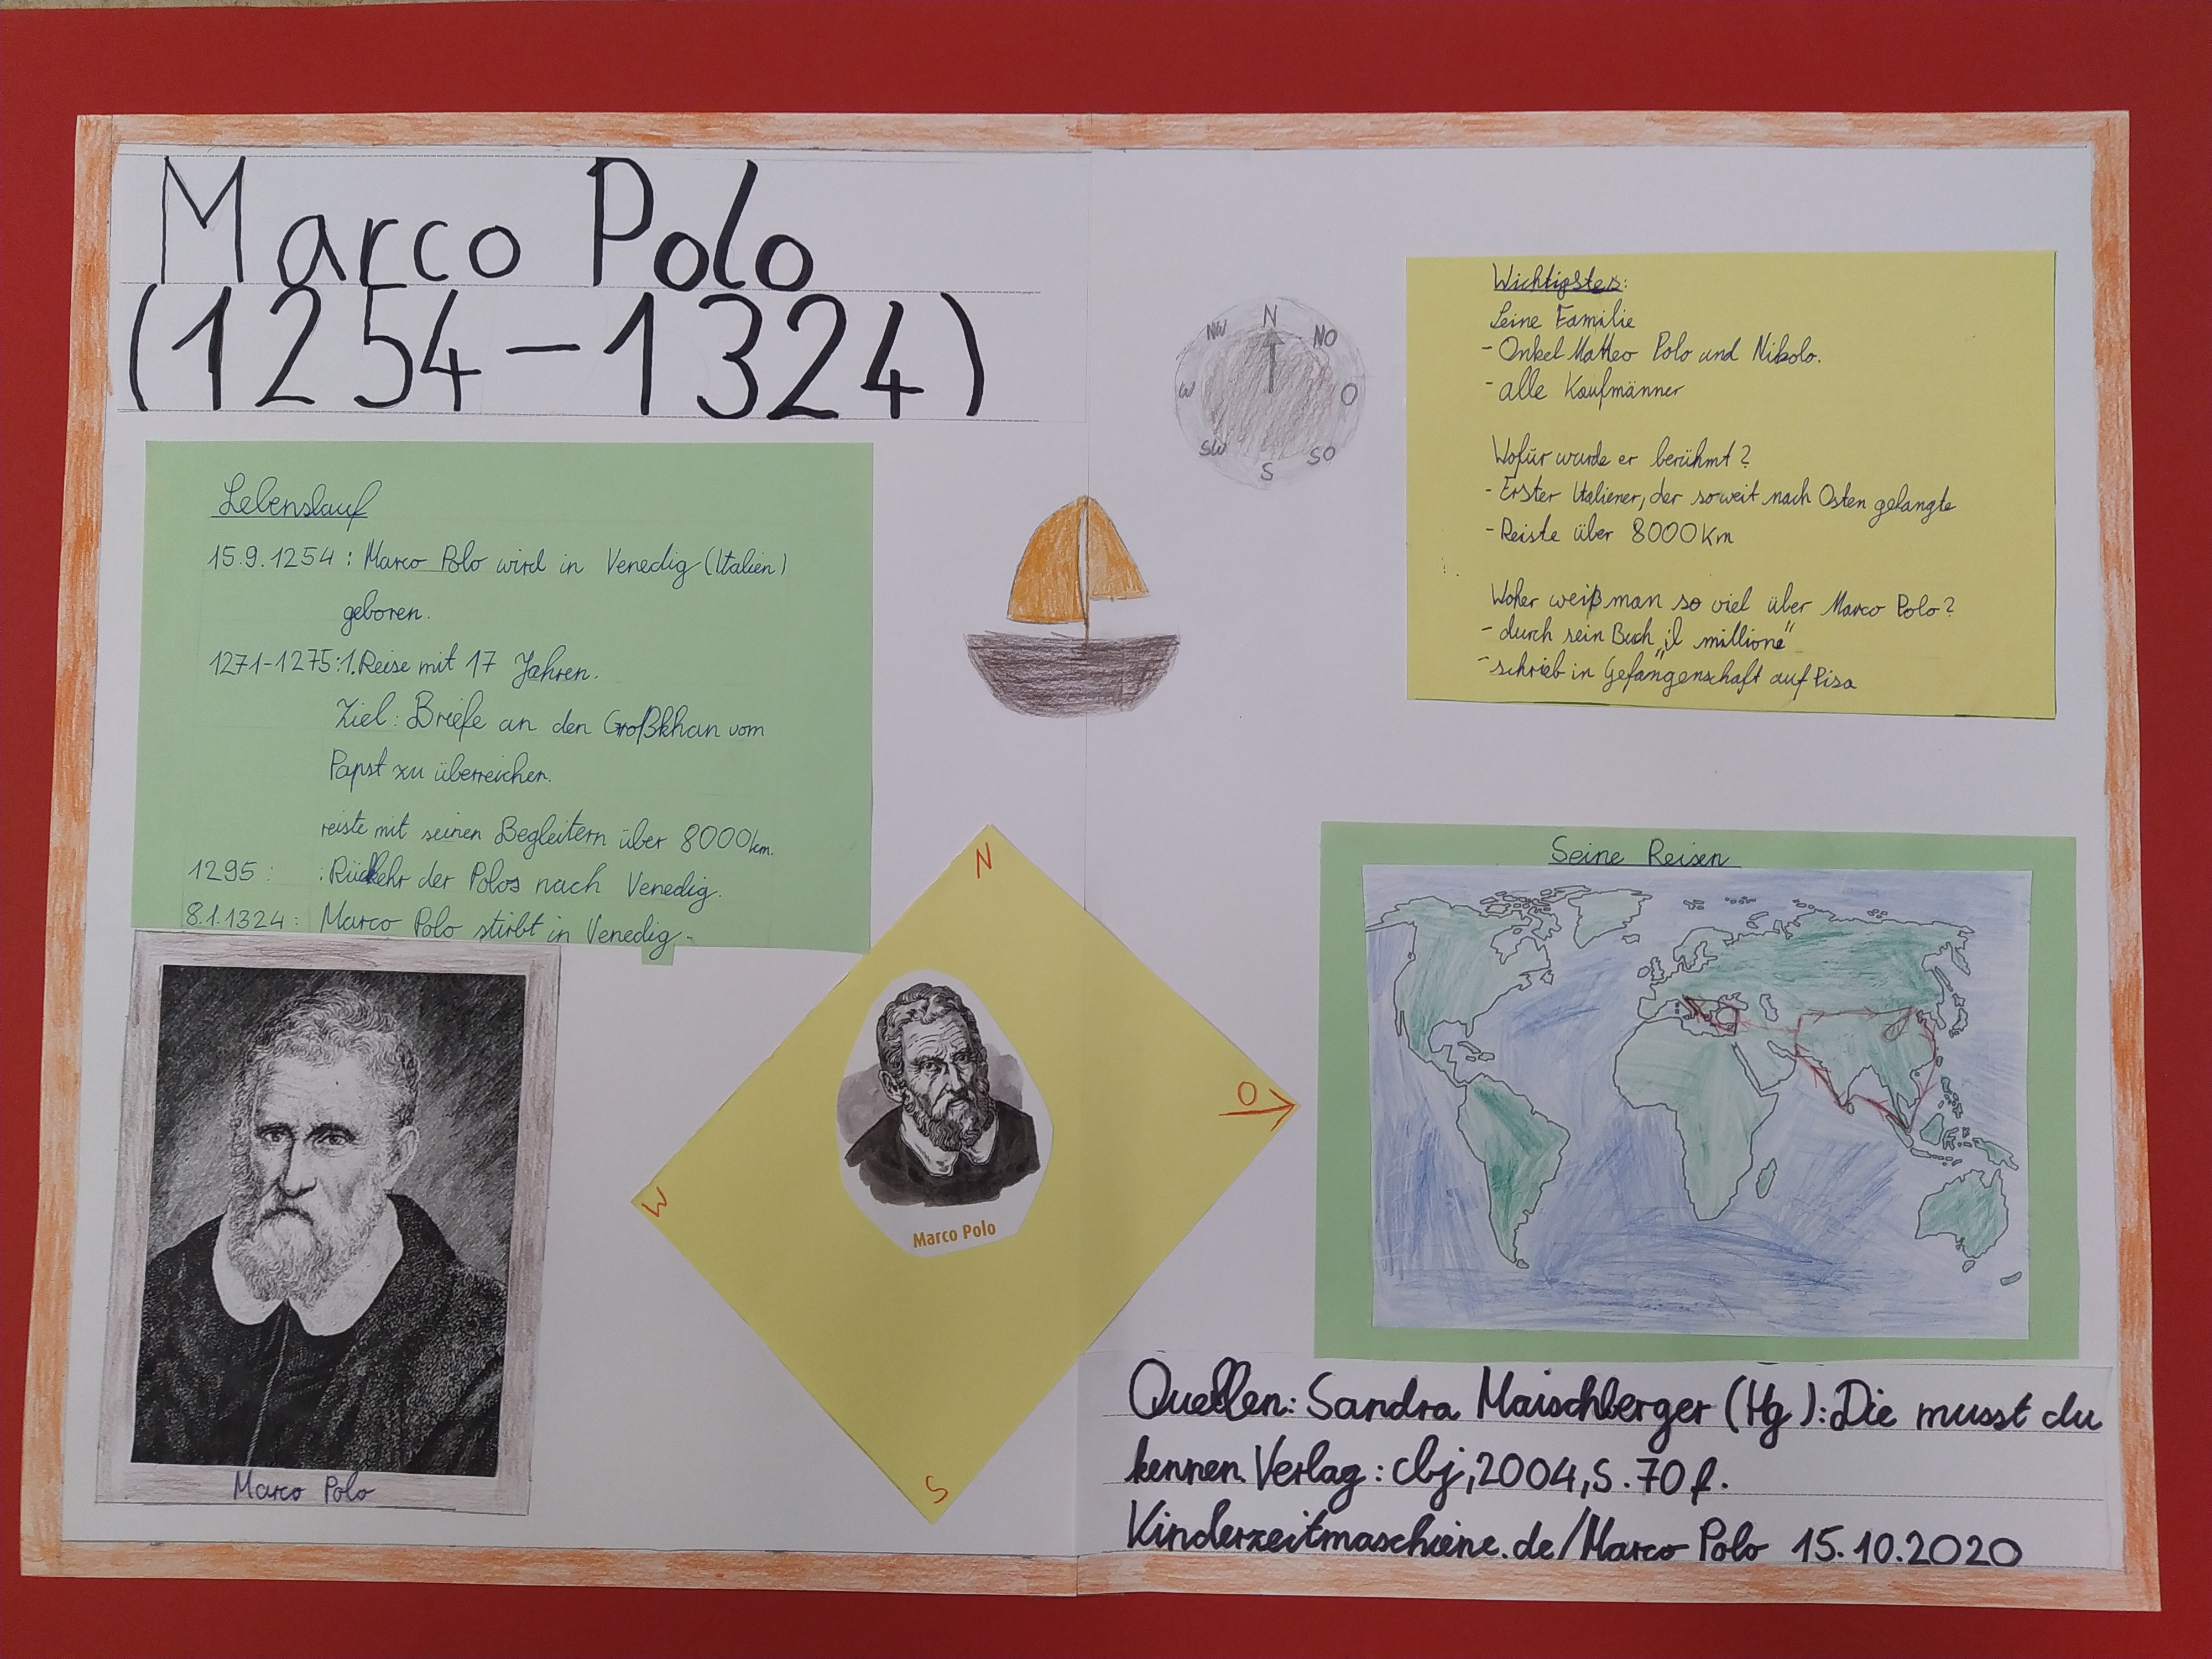 Marco Polo
(1254-1324)
Lebenslauf
15.9.1254: Marco Polo wird in Venedig (Italien)
geboren.
1271-1275: 1. Reise mit 17 Jahren.
Ziel: Briefe an den Großkhan vom
Papst zu überreichen.
reiste mit seinen Begleitern über 8000km.
1295: : Rückkehr der Polos nach Venedig.
8.1.1324: Marco Polo stirbt in Venedig.
Marco Polo
N
NO
O
SO
S
SW
W
NW
N
O
S
W
Marco Polo
Wichtigstes:
Seine Familie
- Onkel Matteo Polo und Nikolo.
- alle Kaufmänner
Wofür wurde er berühmt?
- Erster Italiener, der soweit nach Osten gelangte
- Reiste über 8000km
Woher weiß man so viel über Marco Polo?
- durch sein Buch „il millione“
- schrieb in Gefangenschaft auf Pisa
Seine Reisen
Quellen: Sandra Maischberger (Hg.): Die musst du
kennen. Verlag: cbj, 2004, S. 70 f.
Kinderzeitmaschiene.de/Marco Polo 15.10.2020